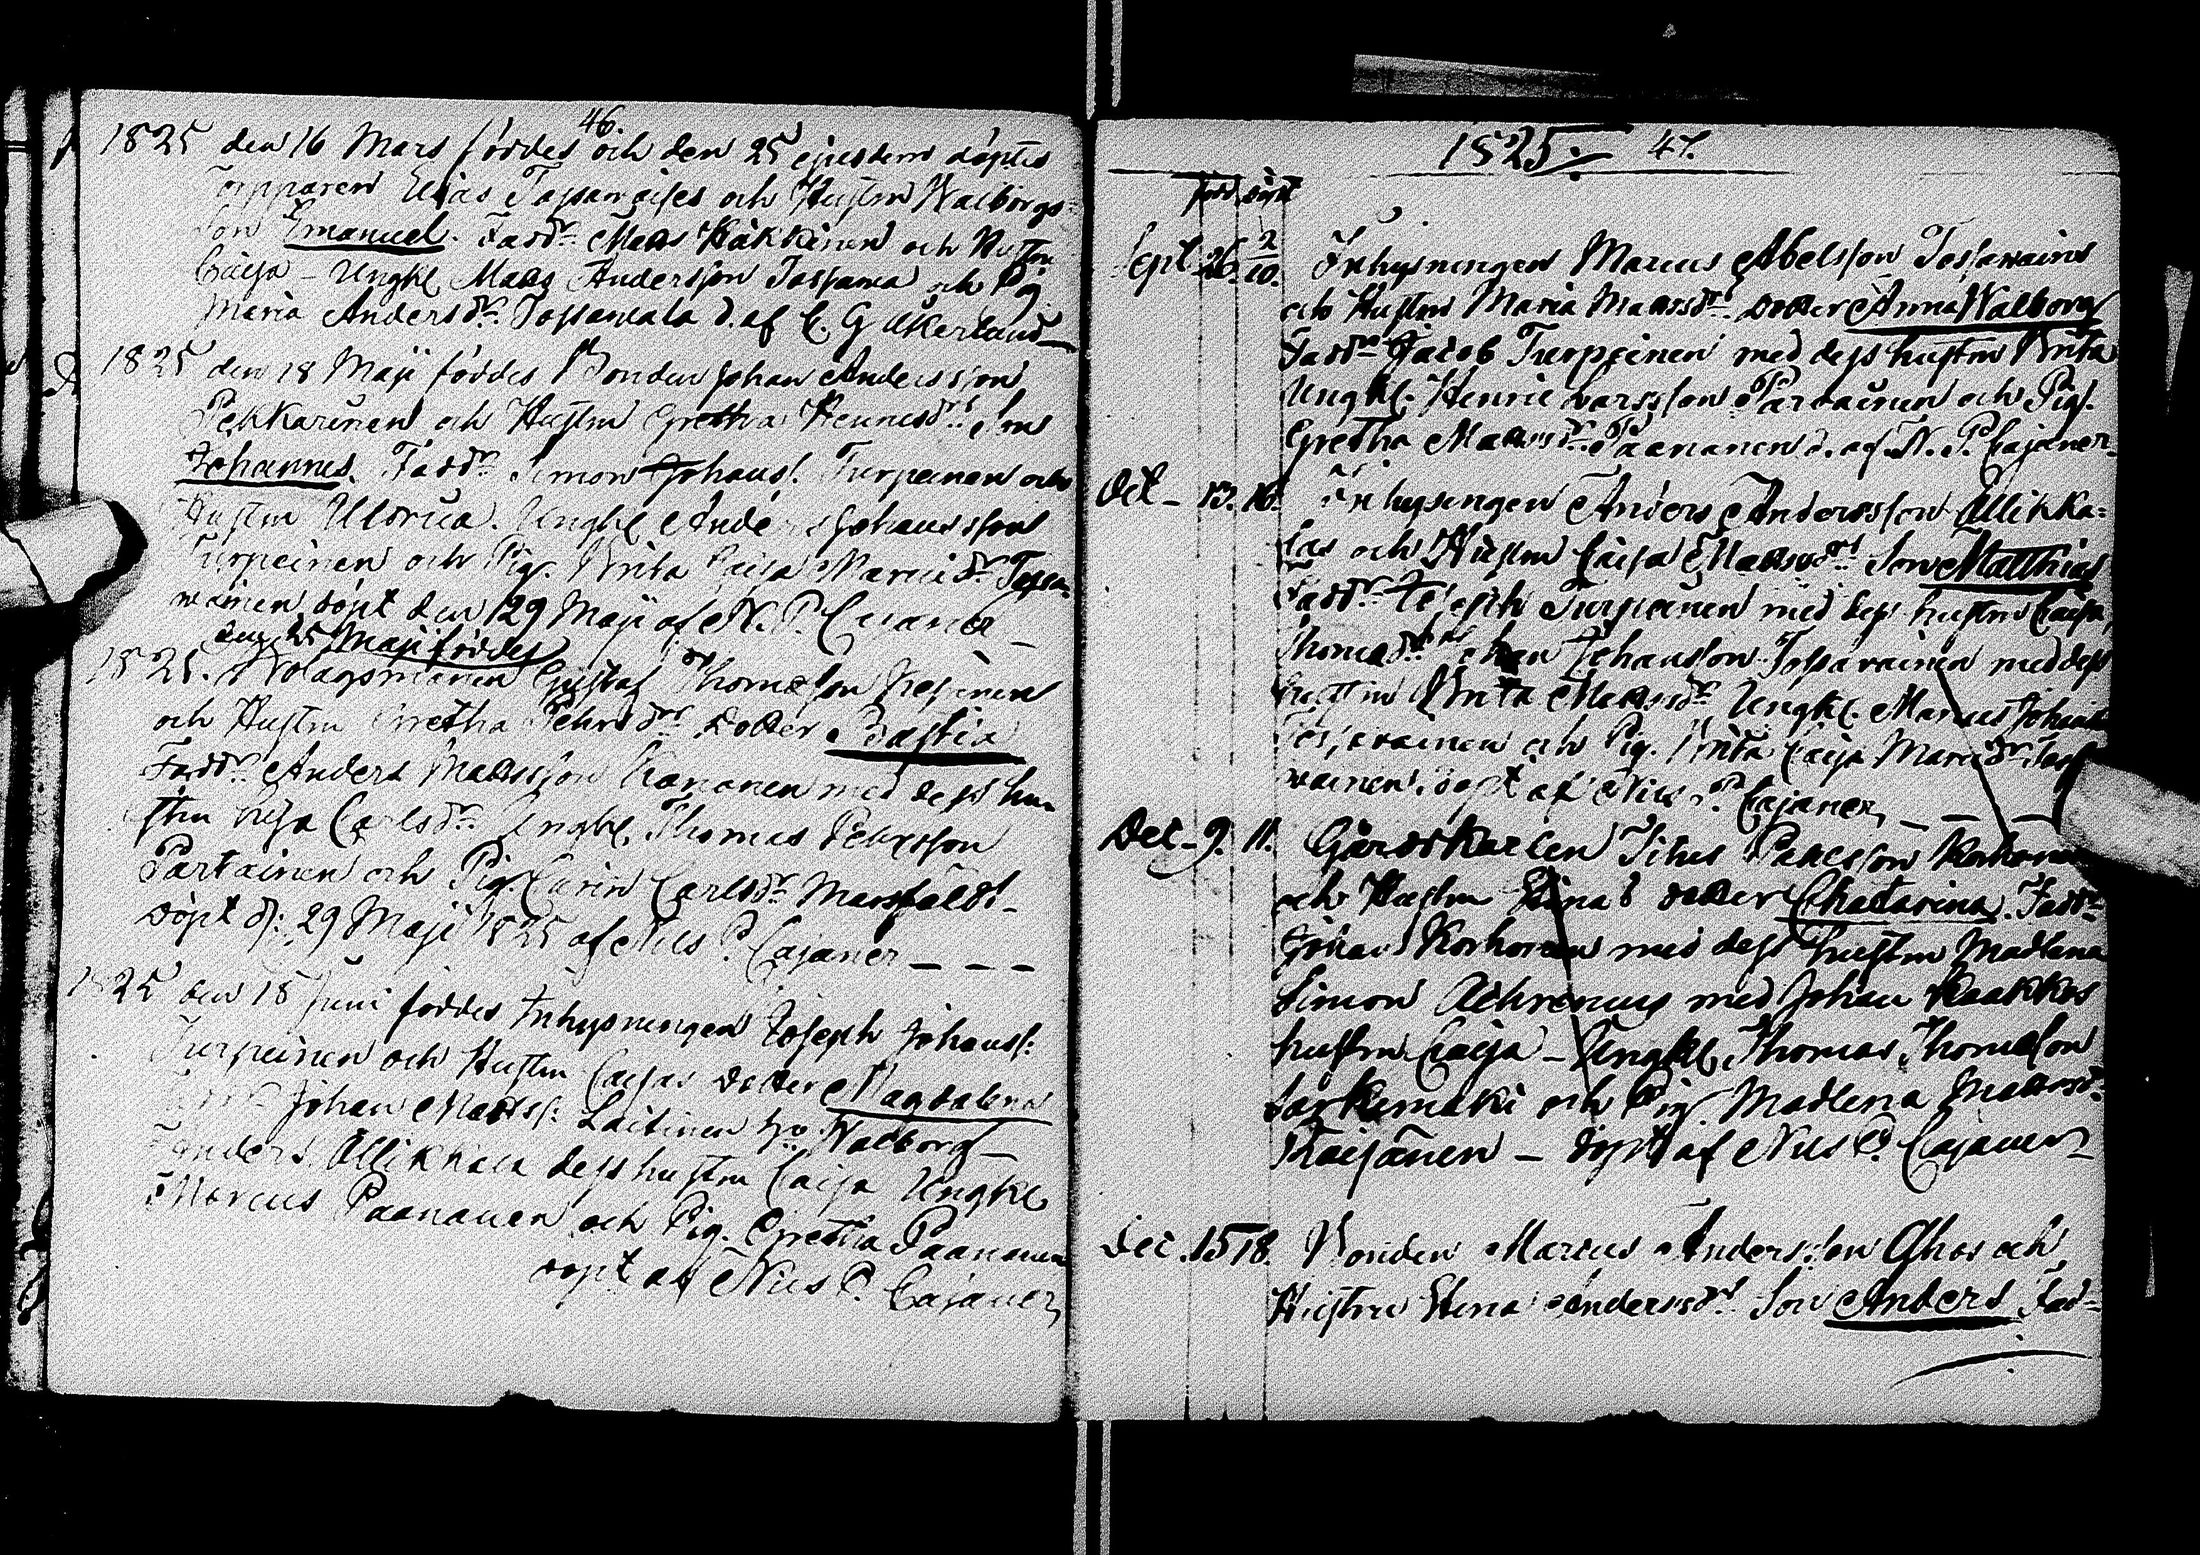 46.
1825 den 16 Mars föddes och den 25 ejusdem döptes
Torpparen Elias Tossavaises och Hustru Walborgs
Son Emanuel. Fadd:r Mats Häkkinen och Hustru
Caisa - Ungk. Mats Andersson Tossava och Pig.
Maria Andersd:r Tossavala d. af C. G Åkerlund
1825 den 18 Maji föddes Bonden Johan Andersson
Pekkarinen och Hustru Gretha Henricsd:rs Son
Johannes. Fadd:r Simon Johanss. Turpeinen och
Hustru Ulorica. Ungk. Anders Johansson
Turpeinen och Pig. Brita Caisa Marcid:r Tossa-
wainen döpt den 29 Maji af N. P. Cajaner
den 25 Maji föddes
1825. Bolagsmannen Gustaf Thomasson
och Hustru Gretha Pehrsd:rs Dotter Bastia
Fadd:r Anders Matsson Kananen med dess hu-
stru Carlsd:r Ungk. Thomas Petersson
Partainen och Pig. Carin Carlsd:r
döpt d: 29 Maji 1825 af Nils P. Cajaner
1825 den 18 Juni föddes Inhysningen Joseph Johanss:
Turpeinen och Hustru Caisas dotter Magdalena
Johan Matss: Laitinen Walborg
Anders Ollikkala dess hustru Caisa Ungk.
Marcus Paananen och Pig. Gretha Paananen
döpt af Nils P. Cajaner
1825. 47.
född döpt
Sept. 26. 2/10. Inhysningen Marcus Abelsson Tossavains
och Hustru Maria Matsd:rs dotter Anna Walborg
Fadd:r Jacob Turpeinen med dess hustru Brita
Ungk. Henric Larsson Partainen och Pig.
Gretha Matsd:r Paananen d. af N. P. Cajaner
Oct - 13. 16. Inhysingen Anders Andersson Ollikka-
las och Hustru Caisa Matsd:rs Son Matthias
Fadd:r Joseph Turpeinen med dess hustru Caisa
Thomasd:r Johan Johansson Tossavainen med dess
hustru Brita Matsd:r Ungk. Marcus Johan
Tossavainen och Pig. Brita Caisa Marcid:r Tossa
wainen. döpt af Nils P. Cajaner
Dec - 9. 11. Gårdskarlen Titus Påhlsson Korhonen
och Hustru Stinas dotter Chatarina. Fadd:r
Johan Korhonen med dess hustru Madlena
Simon Achrenius med Johan Kaakkos
hustru Caisa - Ungk. Thomas Thomasson
Särkimäki och Pig Madlena Matsd:r
- döpt af Nils P. Cajaner
Dec. 15 18. Bonden Marcus Andersson Ohos och
Hustru Stina Andersd:rs Son Anders Fad-